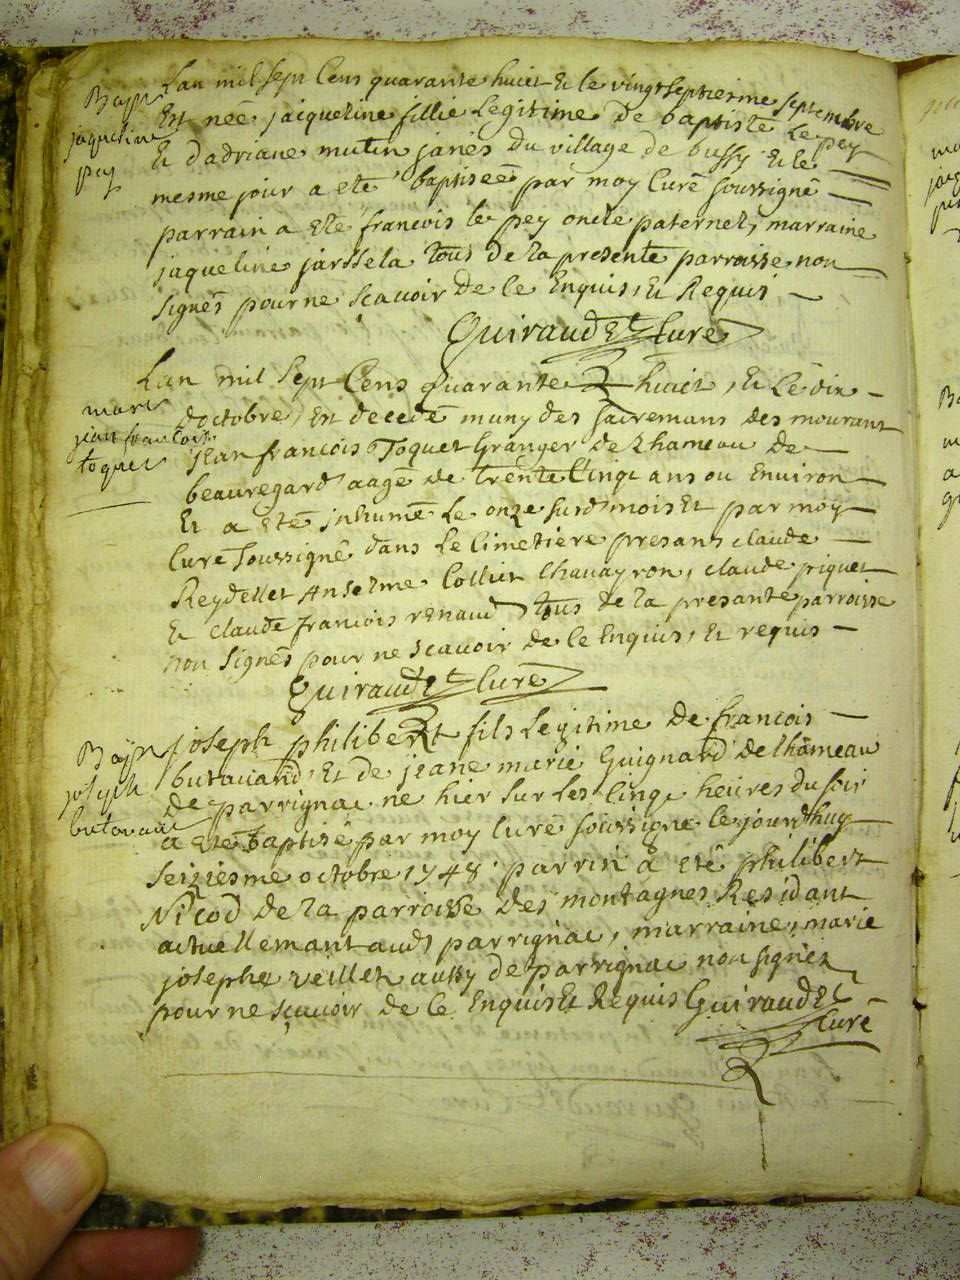 Lan mil sept Cens quarante huict Et le vingtseptiesme septembre
Bapt
jaqueline
pey
Est née jacqueline fillie Legitime De baptiste Le pey
Et dadriane mutin janés Du village de bussy Et le
mesme jour a eté baptiseé par moy Curé soussigné
parrain a eté francois le pey oncle paternel, marraine
jaqueline jarssela tous De la presente parroisse non
signés pour ne scavoir De le Enquis, Et Requis
Guiraudet Curé
Lan mil sept Cens quarante huict, Et Le dix
mort
jean francois
toquet
doctobre Est decedé muny des sacremans des mourant
jean francois Toquet Granger de Lhameau de
beauregard aagé de trente Cinq ans ou Environ
Et a eté inhumé Le onze susd mois Et par moy
Curé soussigné dans Le Cimetiere presans claude
Reydellet Anselme Colliet Chavayron, claude piquet
Et claude francois renaud tous de la presante parroisse
non signés pour ne scavoir de le Enquis, Et requis
Guiraudet Curé
Bapt
joseph
butavand
joseph philibert fils Legitime de francois
butavand, Et de jeane marie Guignard de lhameau
de parrignac ne hier sur Les Cinq heures du soir
a eté baptisé par moy Curé soussigne le jourdhuy
seiziesme octobre 1748 parrin a eté philibert
Nicod de la parroisse des montagnes Residant
actuellemant audt parrignac, marraine, marie
josephe veillet aussy de parrignac non signéz
pour ne scavoir de le Enquis Et Requis Guiraudet
Curé